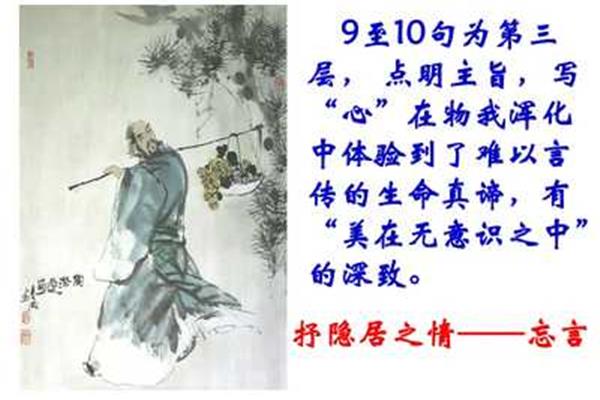 9至10句为第三
层，点明主旨，写
“心”在物我浑化
中体验到了难以言
传的生命真谛，有
“美在无意识之中”
的深致。
抒隐居之情——忘言